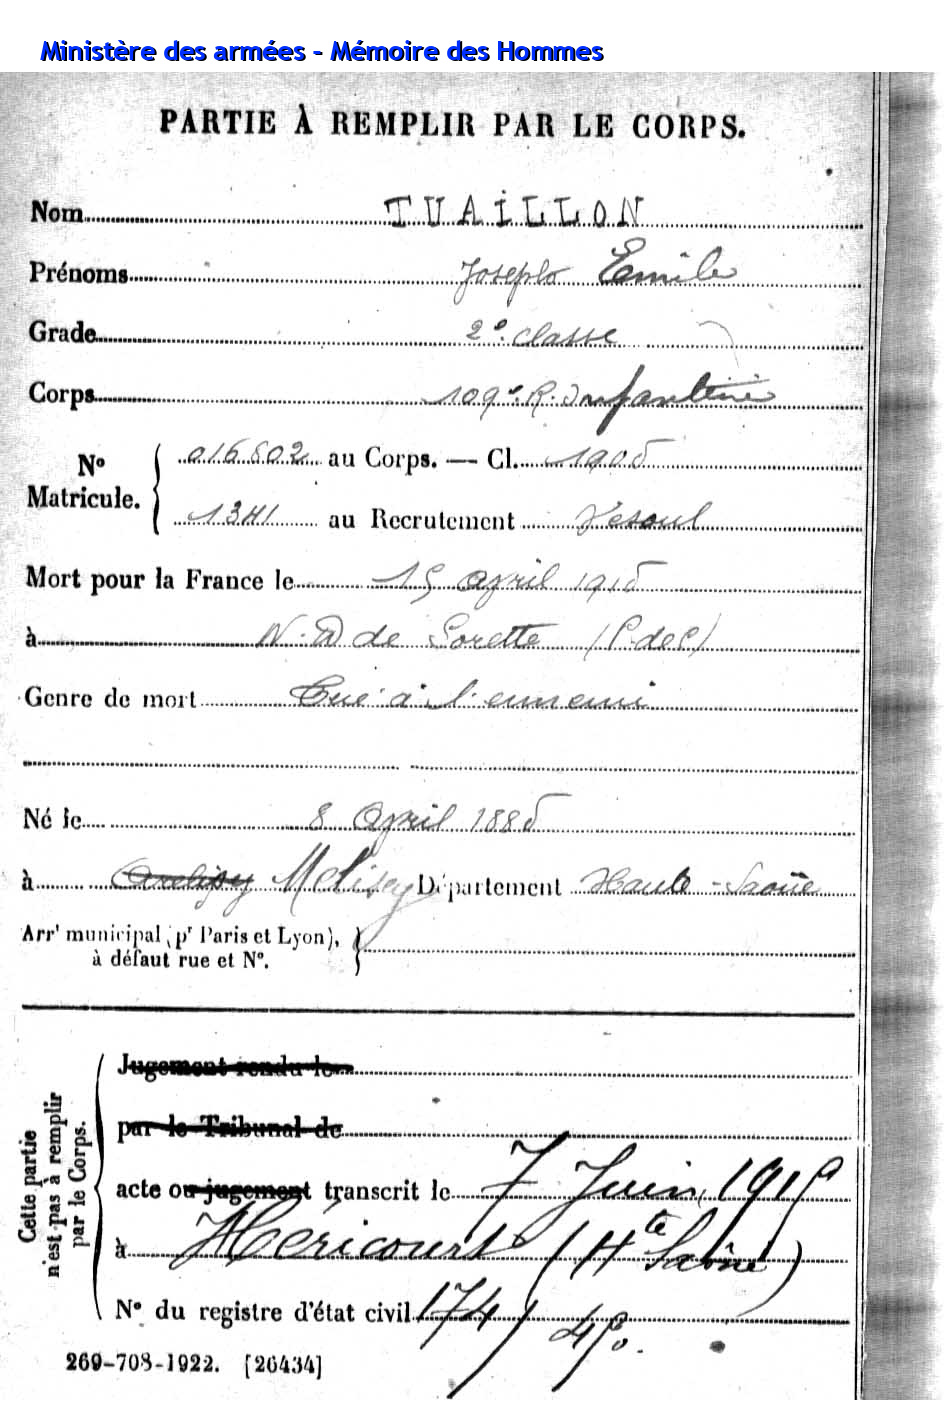 Ministère des armées - Mémoire des Hommes
PARTIE À REMPLIR PAR LE CORPS.
Nom TUAILLON
Prénoms Joseph Emile
Grade 2e classe
Corps 109e R. Infanterie
No Matricule. { 016802 au Corps. — Cl. 1905
1341 au Recrutement Vesoul
Mort pour la France le 15 avril 1915
à N. D de Lorette (P. de C)
Genre de mort Tué à l'ennemi
Né le 8 Avril 1885
à Melisey Département Haute-Saône
Arrt municipal (pr Paris et Lyon), }
à défaut rue et No.
Cette partie n'est pas à remplir par le Corps.
Jugement rendu le
par le Tribunal de
acte ou jugement transcrit le 7 Juin 1915
à Héricourt (Hte Saône)
No du registre d'état civil 174/
269-708-1922. [26434]